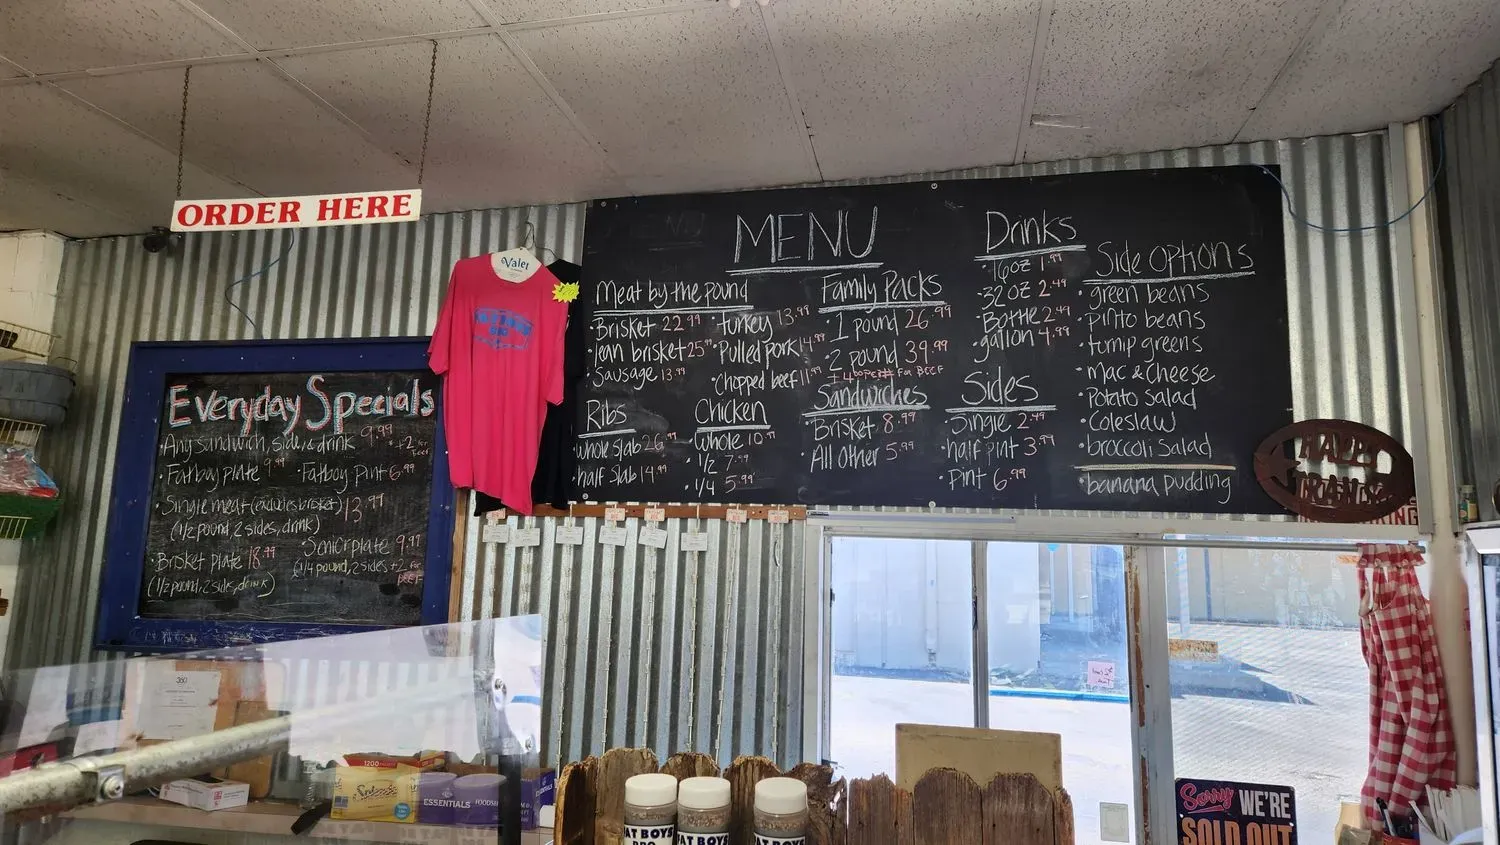 ORDER HERE
Valet
Everyday Specials
• Any sandwich, side, & drink 9.99 • +2 for Beef
• Fatboy plate 9.99 • Fatboy Pint 6.99
• Single meat (excludes brisket) 13.99
(1/2 pound, 2 sides, drink)
• Brisket plate 18.99
(1/2 pound, 2 sides, drink)
• Senior plate 9.99
(1/4 pound, 2 sides +2 for BEEF
MENU
Meat by the pound
• Brisket 22.99
• lean brisket 25.99
• Sausage 13.99
• turkey 13.99
• Pulled pork 14.99
• Chopped beef 11.99
Ribs
• whole slab 26.99
• half slab 14.99
Chicken
• whole 10.99
• 1/2 7.99
• 1/4 5.99
Family Packs
• 1 pound 26.99
• 2 pound 39.99
FOR BEEF
Sandwiches
• Brisket 8.99
• All Other 5.99
Drinks
• 16oz 1.99
• 32oz 2.49
• Bottle 2.49
• gallon 4.99
Sides
• Single 2.49
• half pint 3.99
• Pint 6.99
Side Options
• green beans
• pinto beans
• turnip greens
• Mac & Cheese
• Potato Salad
• Coleslaw
• broccoli Salad
• banana pudding
HAPPY
TRAILS
360
1200
ESSENTIALS
FAT BOYS
BBQ
FAT BOYS
FAT BOYS
Sorry WE'RE
SOLD OUT